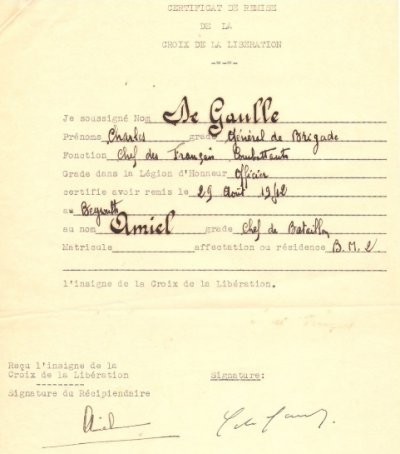 CERTIFICAT DE REMISE
DE LA
CROIX DE LA LIBÉRATION
Je soussigné Nom De Gaulle
Prénoms Charles grade Général de Brigade
Fonction Chef des Français Combattants
Grade dans la Légion d'Honneur Officier
certifie avoir remis le 29 Août 1942
au Beyrouth
au nom Amiel grade Chef de Bataillon
Matricule affectation ou résidence B.M.2
l'insigne de la Croix de la Libération.
Reçu l'insigne de la
Croix de la Libération
Signature du Récipiendaire
Signature:
Amiel